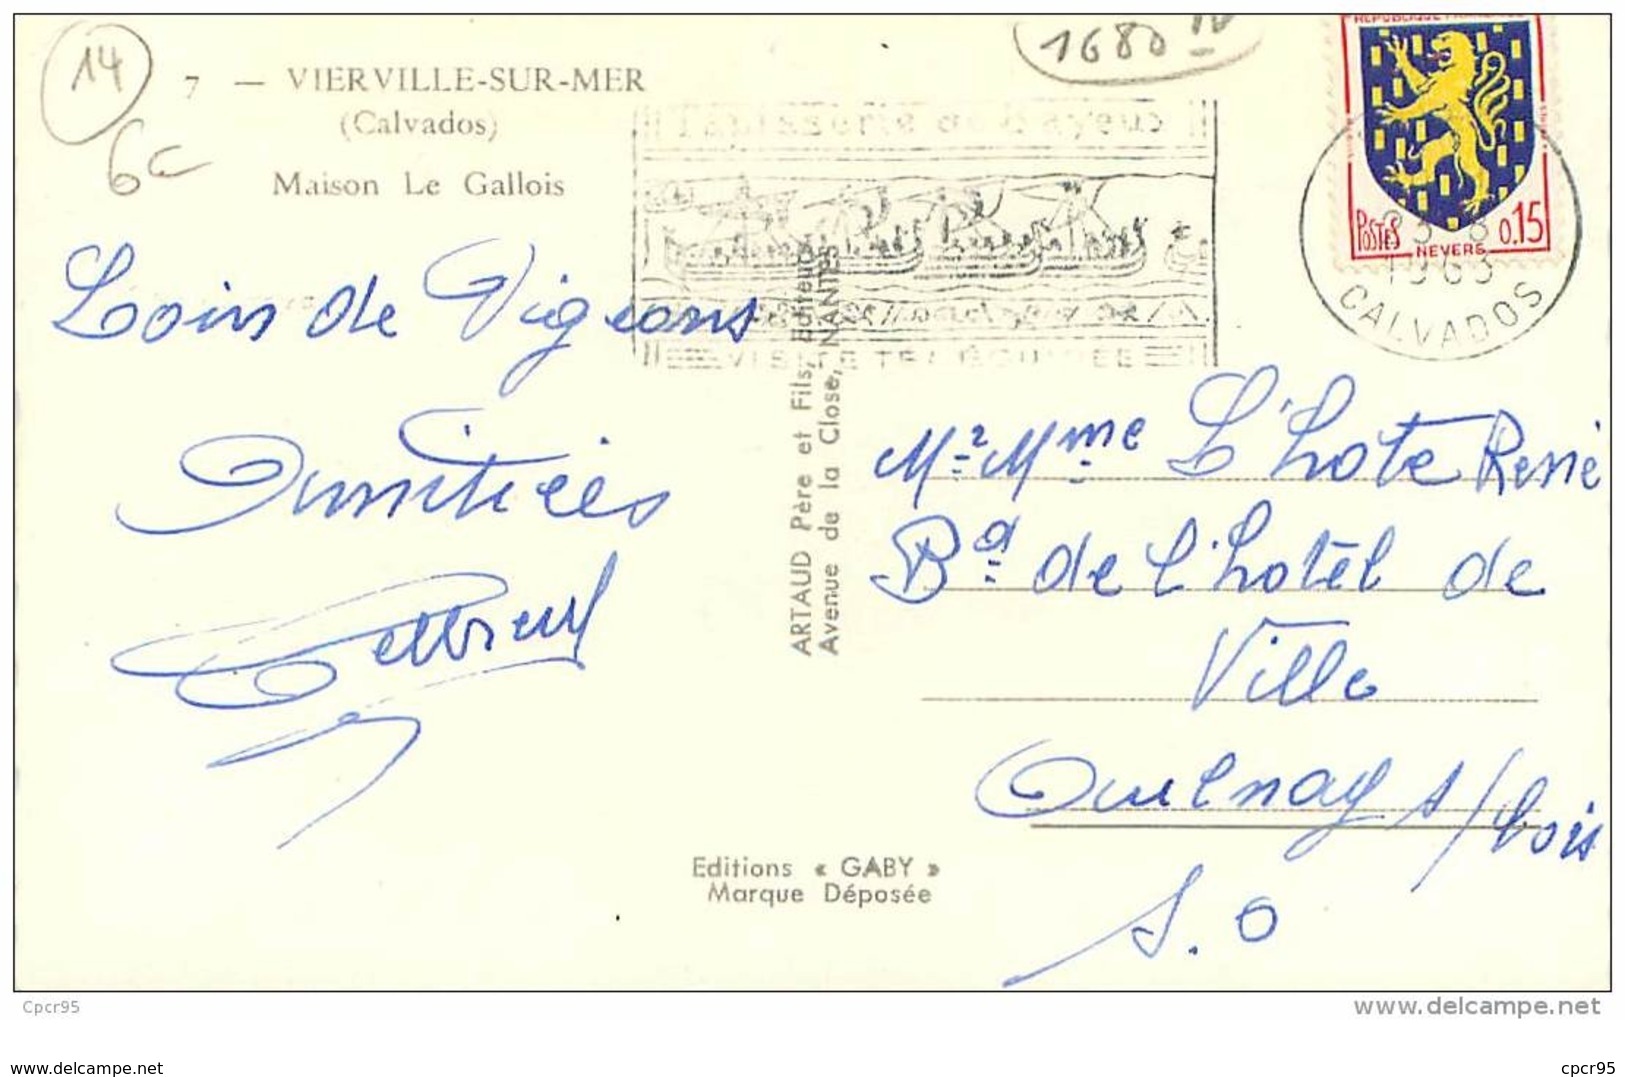 14
6c
1680 IV
7 — VIERVILLE-SUR-MER
(Calvados)
Maison Le Gallois
Tapisserie de Bayeux
REPUBLIQUE FRANÇAISE
POSTES
NEVERS 0,15
1963
CALVADOS
Loin de Vigeons
Amitiés
ARTAUD Père et Fils, Editeurs
Avenue de la Close, NANTES
Mr Mme L'hote René
Bd de l'hotel de
Ville
Aulnay s/bois
S. O
Editions « GABY »
Marque Déposée
Cpcr95
www.delcampe.net
www.delcampe.net
cpcr95